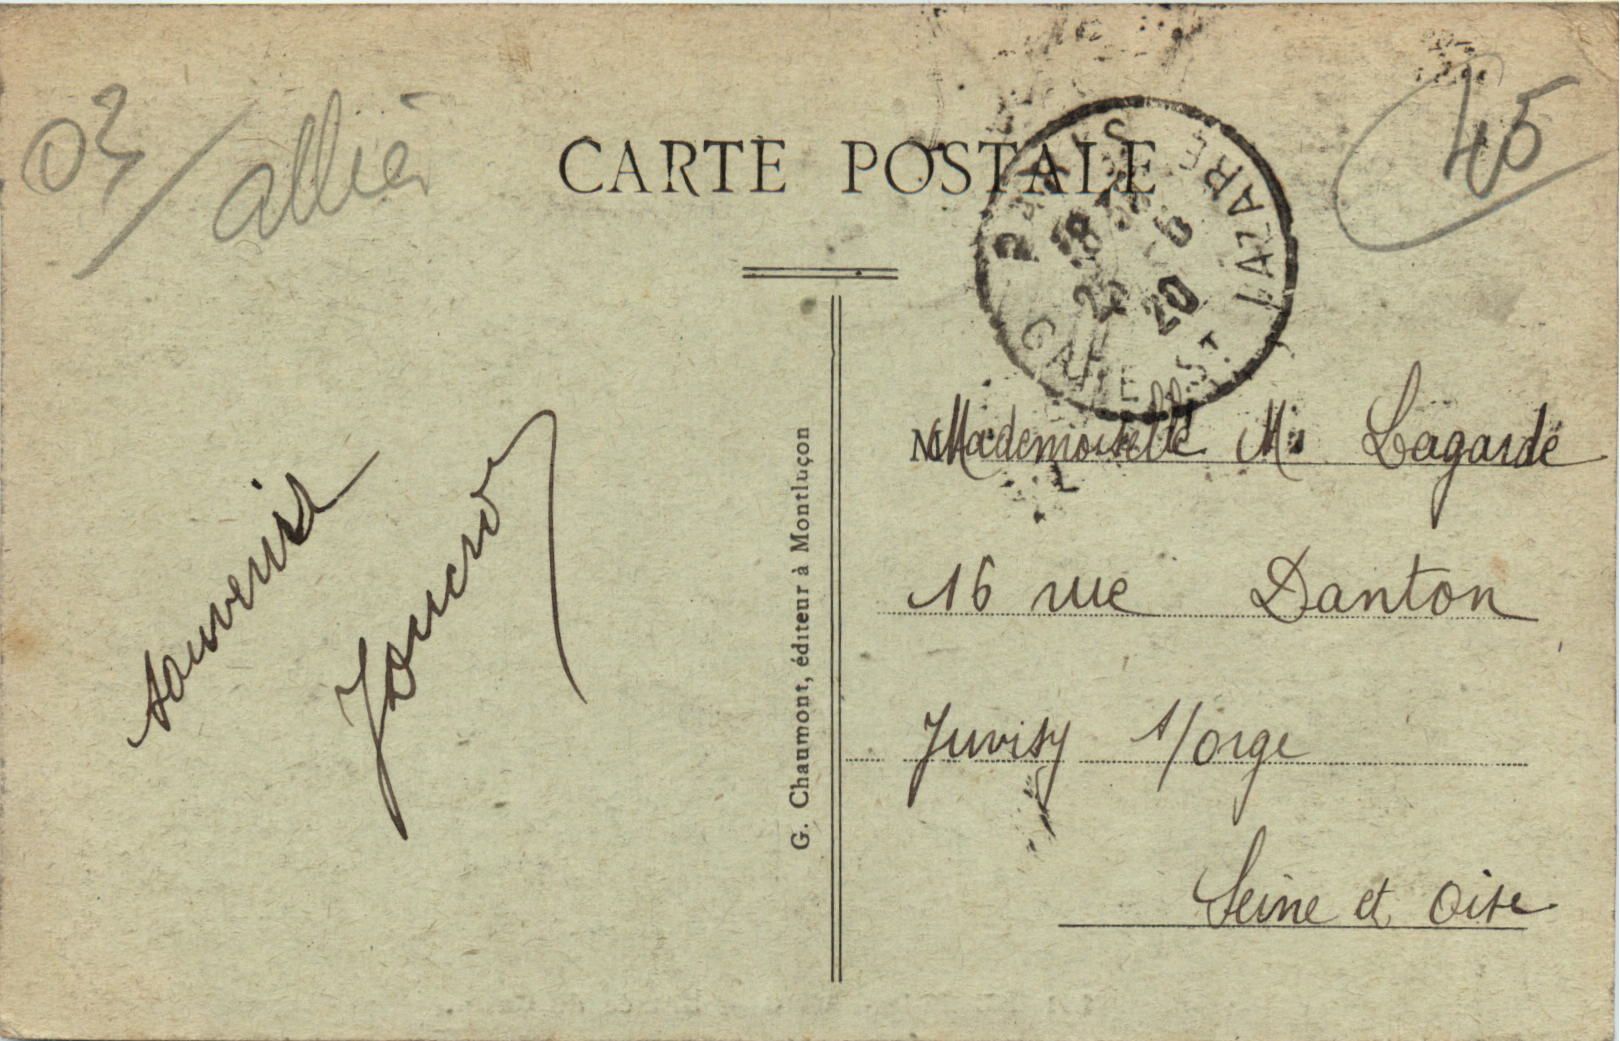 03/ allier
CARTE POSTALE
45
PARIS
GARE ST LAZARE
18
22 -6
20
souvenirs
G. Chaumont, éditeur à Montluçon
M
Mademoiselle M. Lagarde
16 rue Danton
Juvisy s/orge
Seine et Oise